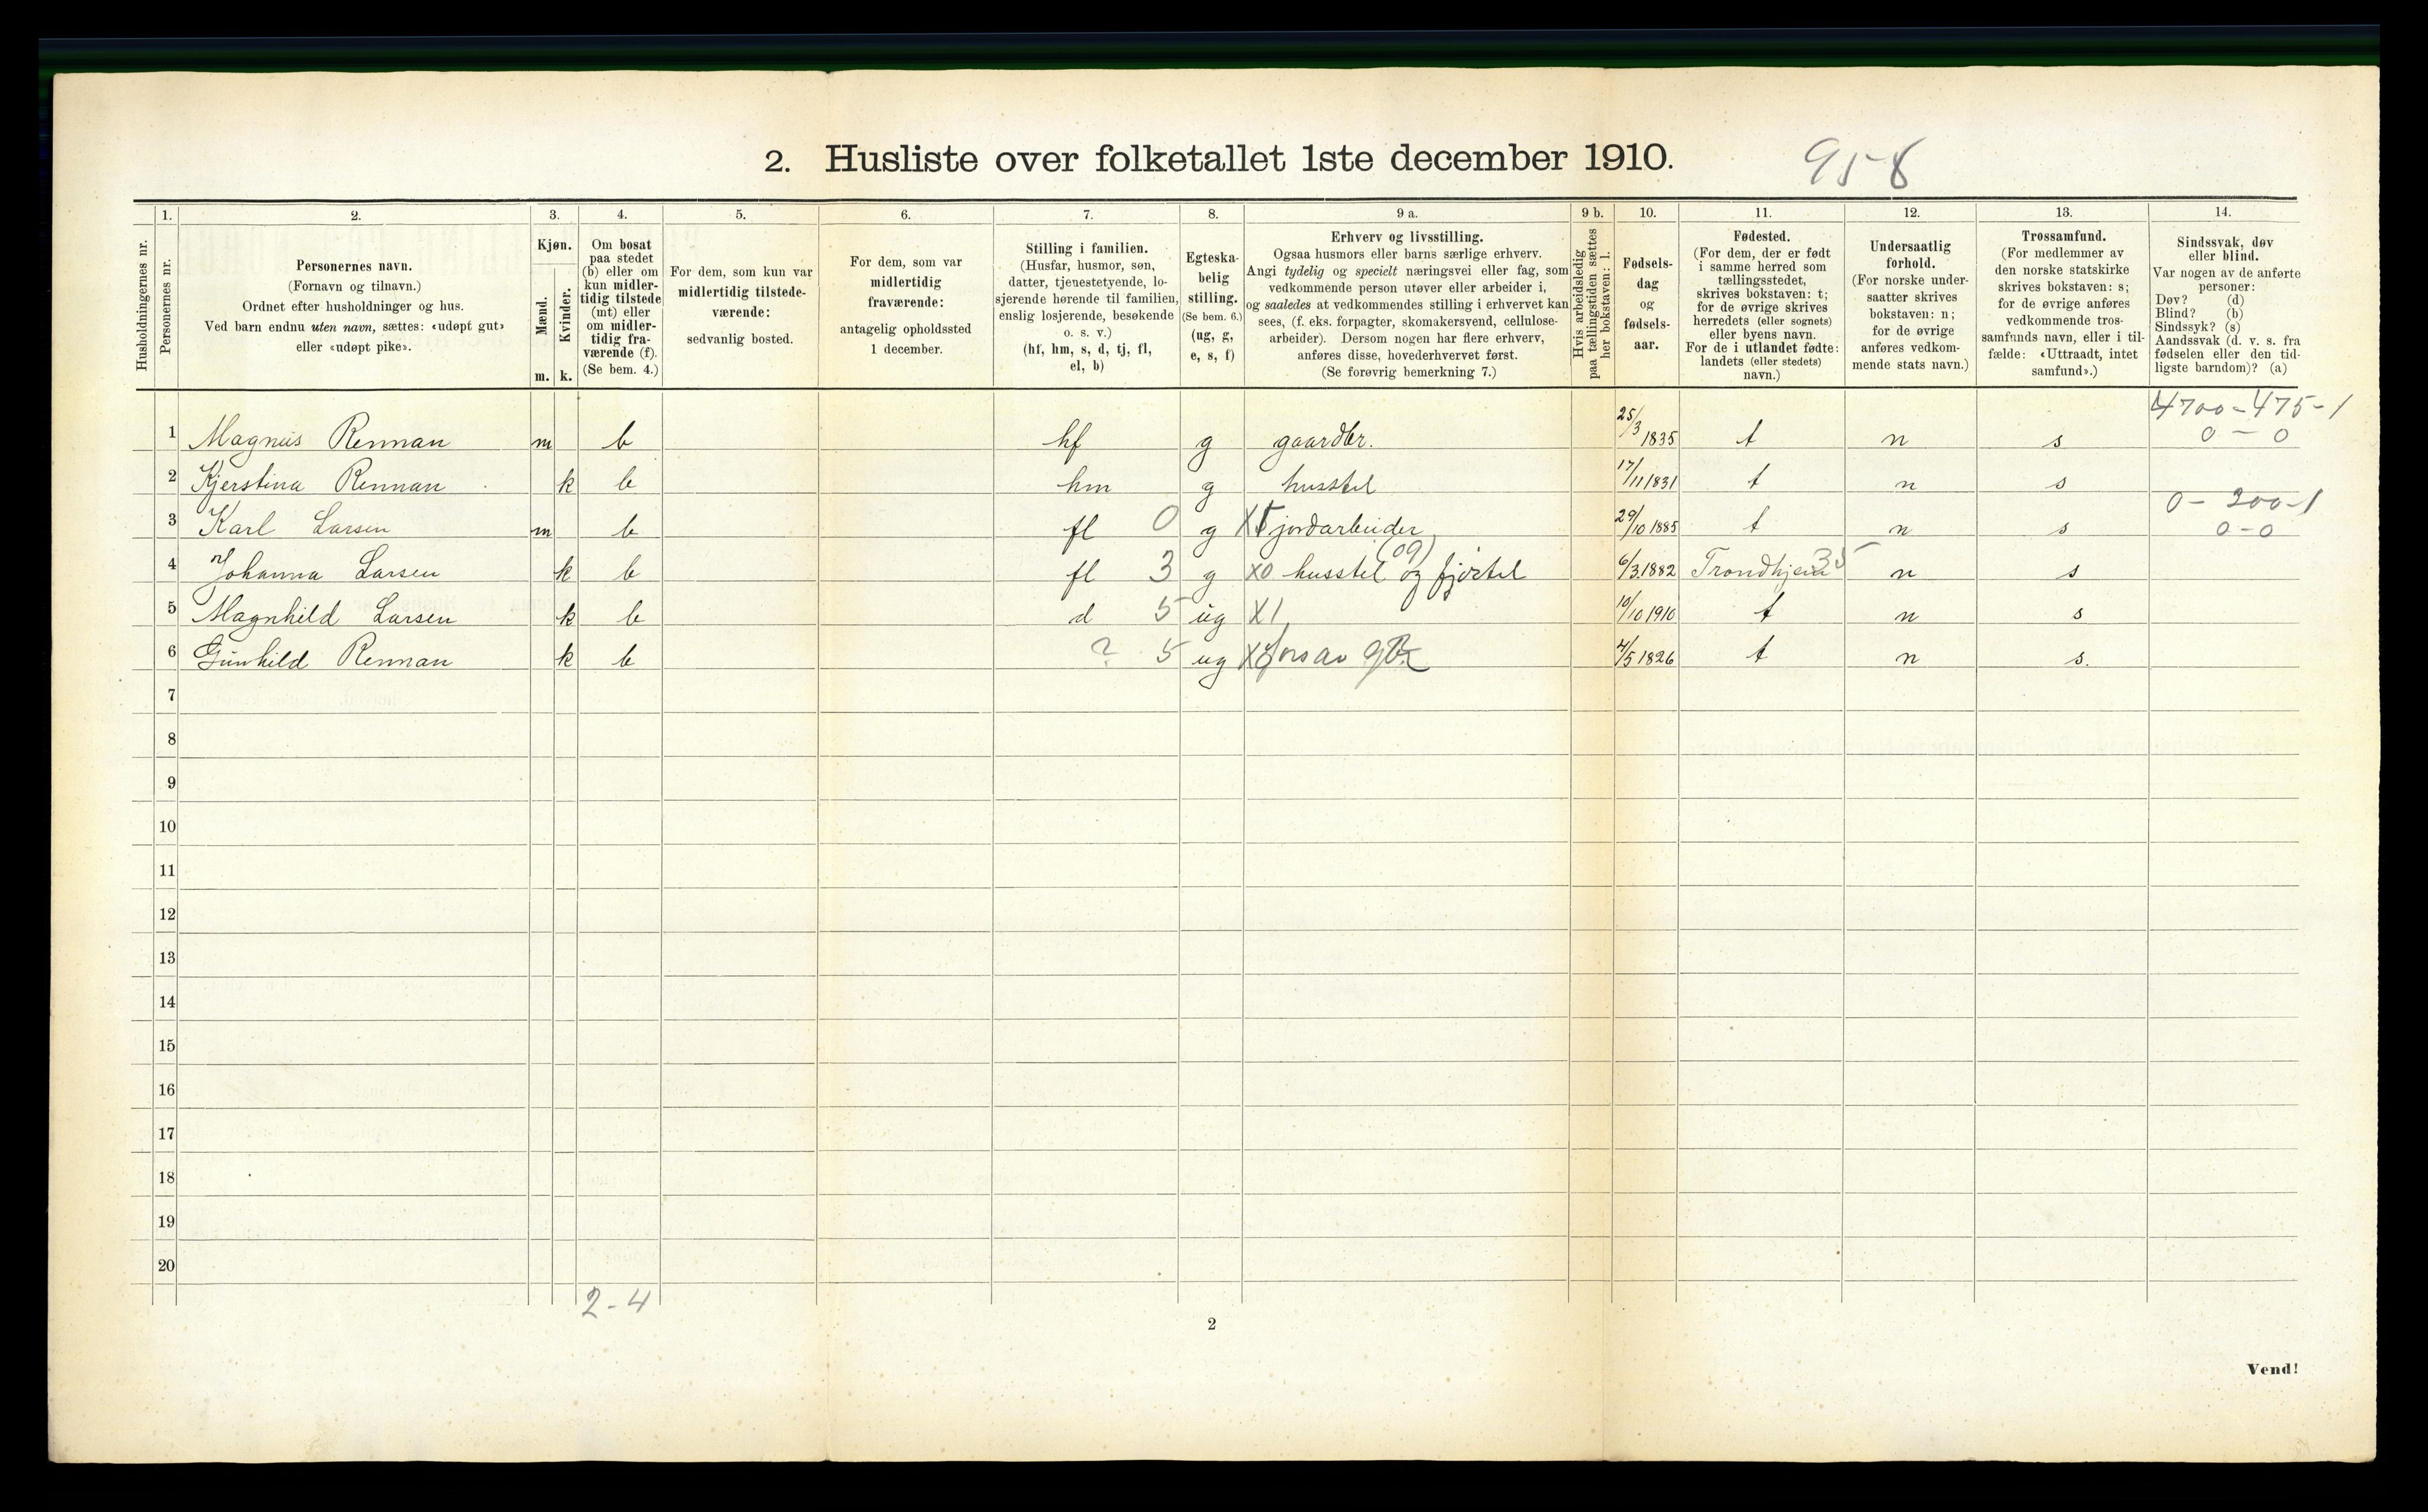 2. Husliste over folketallet 1ste december 1910.
958
1. 2. 3. 4. 5. 6. 7. 8. 9 a. 9 b. 10. 11. 12. 13. 14.
Husholdningernes nr.
Personernes nr.
Personernes navn.
(Fornavn og tilnavn.)
Ordnet efter husholdninger og hus.
Ved barn endnu uten navn, sættes: «udøpt gut»
eller «udøpt pike».
Kjøn.
Mænd.
Kvinder.
m. k.
Om bosat
paa stedet
(b) eller om
kun midler-
tidig tilstede
(mt) eller
om midler-
tidig fra-
værende (f).
(Se bem. 4.)
For dem, som kun var
midlertidig tilstede-
værende:
sedvanlig bosted.
For dem, som var
midlertidig
fraværende:
antagelig opholdssted
1 december.
Stilling i familien.
(Husfar, husmor, søn,
datter, tjenestetyende, lo-
sjerende hørende til familien,
enslig losjerende, besøkende
o. s. v.)
(hf, hm, s, d, tj, fl,
el, b)
Egteska-
belig
stilling.
(Se bem. 6.)
(ug, g,
e, s, f)
Erhverv og livsstilling.
Ogsaa husmors eller barns særlige erhverv.
Angi tydelig og specielt næringsvei eller fag, som
vedkommende person utøver eller arbeider i,
og saaledes at vedkommendes stilling i erhvervet kan
sees, (f. eks. forpagter, skomakersvend, cellulose-
arbeider). Dersom nogen har flere erhverv,
anføres disse, hovederhvervet først.
(Se forøvrig bemerkning 7.)
Hvis arbeidsledig
paa tællingstiden sættes
her bokstaven: l.
Fødsels-
dag
og
fødsels-
aar.
Fødested.
(For dem, der er født
i samme herred som
tællingsstedet,
skrives bokstaven: t;
for de øvrige skrives
herredets (eller sognets)
eller byens navn.
For de i utlandet fødte:
landets (eller stedets)
navn.)
Undersaatlig
forhold.
(For norske under-
saatter skrives
bokstaven: n;
for de øvrige
anføres vedkom-
mende stats navn.)
Trossamfund.
(For medlemmer av
den norske statskirke
skrives bokstaven: s;
for de øvrige anføres
vedkommende tros-
samfunds navn, eller i til-
fælde: «Uttraadt, intet
samfund».)
Sindssvak, døv
eller blind.
Var nogen av de anførte
personer:
Døv? (d)
Blind? (b)
Sindssyk? (s)
Aandssvak (d. v. s. fra
fødselen eller den tid-
ligste barndom)? (a)
4700-475-1
1 Magnus Rennan m b hf g gaardbr. 25/3 1835 t n s 0-0
2 Kjerstina Rennan k b hm g husstel 17/11 1831 t n s
0-200-1
3 Karl Larsen m b fl 0 g jordarbeider 29/10 1885 t n s 0-0
(09)
4 Johanna Larsen k b fl 3 g X0 husstel og fjøstel 6/3 1882 Trondhjem 35 n s
5 Magnhild Larsen k b d 5 ug X1 10/10 1910 t n s
6 Gunhild Rennan k b ? 5 ug fors av 4/5 1826 t n s.
7
8
9
10
11
12
13
14
15
16
17
18
19
20
2-4
2
Vend!